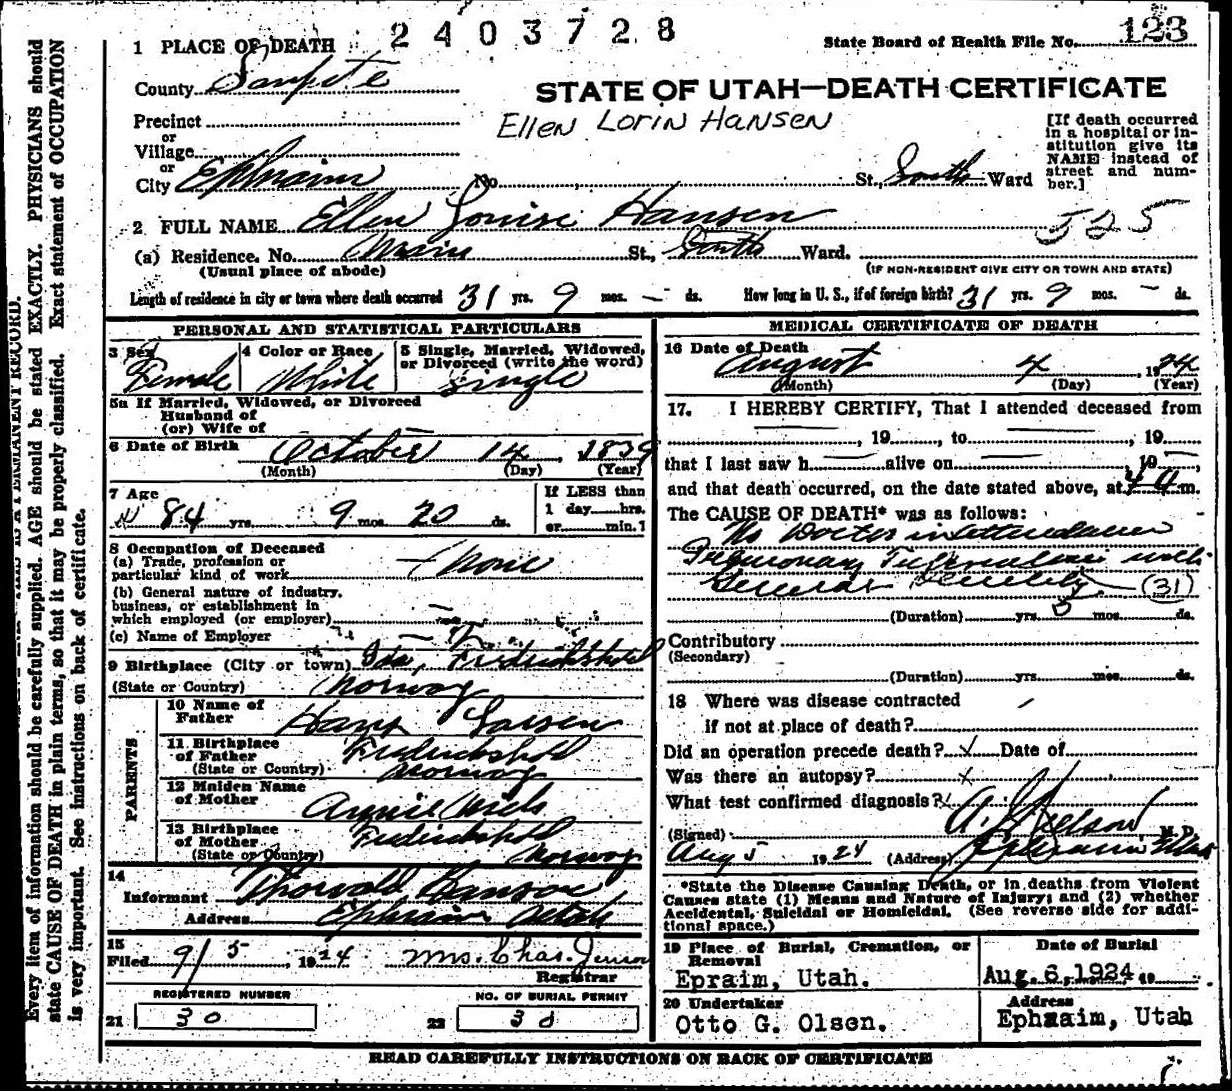 2403728
State Board of Health File No. 123
1 PLACE OF DEATH
County Sanpete
STATE OF UTAH—DEATH CERTIFICATE
Ellen Lorin Hansen
Precinct
or
Village
or
City Ephraim No. St., South Ward
[If death occurred
in a hospital or in-
stitution give its
NAME instead of
street and num-
ber.]
2 FULL NAME Ellen Louise Hansen
525
(a) Residence. No. Main St., South Ward.
(Usual place of abode)
(IF NON-RESIDENT GIVE CITY OR TOWN AND STATE)
Length of residence in city or town where death occurred 31 yrs. 9 mos. — ds. How long in U. S., if of foreign birth? 31 yrs. 9 mos. — ds.
PERSONAL AND STATISTICAL PARTICULARS
3 Sex
Female
4 Color or Race
White
5 Single, Married, Widowed,
or Divorced (write the word)
Single
5a If Married, Widowed, or Divorced
Husband of
(or) Wife of
6 Date of Birth October 14, 1839
(Month) (Day) (Year)
7 Age
84 yrs. 9 mos. 20 ds.
If LESS than
1 day hrs.
or min.?
8 Occupation of Deceased
(a) Trade, profession or
particular kind of work None
(b) General nature of industry,
business, or establishment in
which employed (or employer)
(c) Name of Employer
9 Birthplace (City or town) Fredrickshold
(State or Country) Norway
PARENTS
10 Name of
Father Hans Larsen
11 Birthplace
of Father Fredrickshold
(State or Country) Norway
12 Maiden Name
of Mother Annie
13 Birthplace
of Mother Fredrickshold
(State or Country) Norway
14
Informant Thorvald Hanson
Address Ephraim Utah
15
Filed 9/5, 1924 Mrs. Chas. Jenson
Registrar
REGISTERED NUMBER
21 30
NO. OF BURIAL PERMIT
22 30
MEDICAL CERTIFICATE OF DEATH
16 Date of Death
August 4, 1924
(Month) (Day) (Year)
17. I HEREBY CERTIFY, That I attended deceased from
, 19 , to , 19
that I last saw h alive on , 19
and that death occurred, on the date stated above, at 4 a m.
The CAUSE OF DEATH* was as follows:
No Doctor in attendance
Pulmonary Tuberculosis with
General Senility (31)
(Duration) yrs. 5 mos. ds.
Contributory
(Secondary)
(Duration) yrs. mos. ds.
18 Where was disease contracted
if not at place of death?
Did an operation precede death? x Date of
Was there an autopsy? x
What test confirmed diagnosis?
(Signed) A. J. Nelson M. D.
Aug 5 1924 (Address) Ephraim Utah
*State the Disease Causing Death, or in deaths from Violent
Causes state (1) Means and Nature of Injury; and (2) whether
Accidental, Suicidal or Homicidal. (See reverse side for addi-
tional space.)
19 Place of Burial, Cremation, or
Removal
Epraim, Utah.
Date of Burial
Aug. 6, 1924, 19
20 Undertaker
Otto G. Olsen.
Address
Ephraim, Utah
READ CAREFULLY INSTRUCTIONS ON BACK OF CERTIFICATE
Every item of information should be carefully supplied. AGE should be stated EXACTLY. PHYSICIANS should
state CAUSE OF DEATH in plain terms, so that it may be properly classified. Exact statement of OCCUPATION
is very important. See instructions on back of certificate.
THIS IS A PERMANENT RECORD.